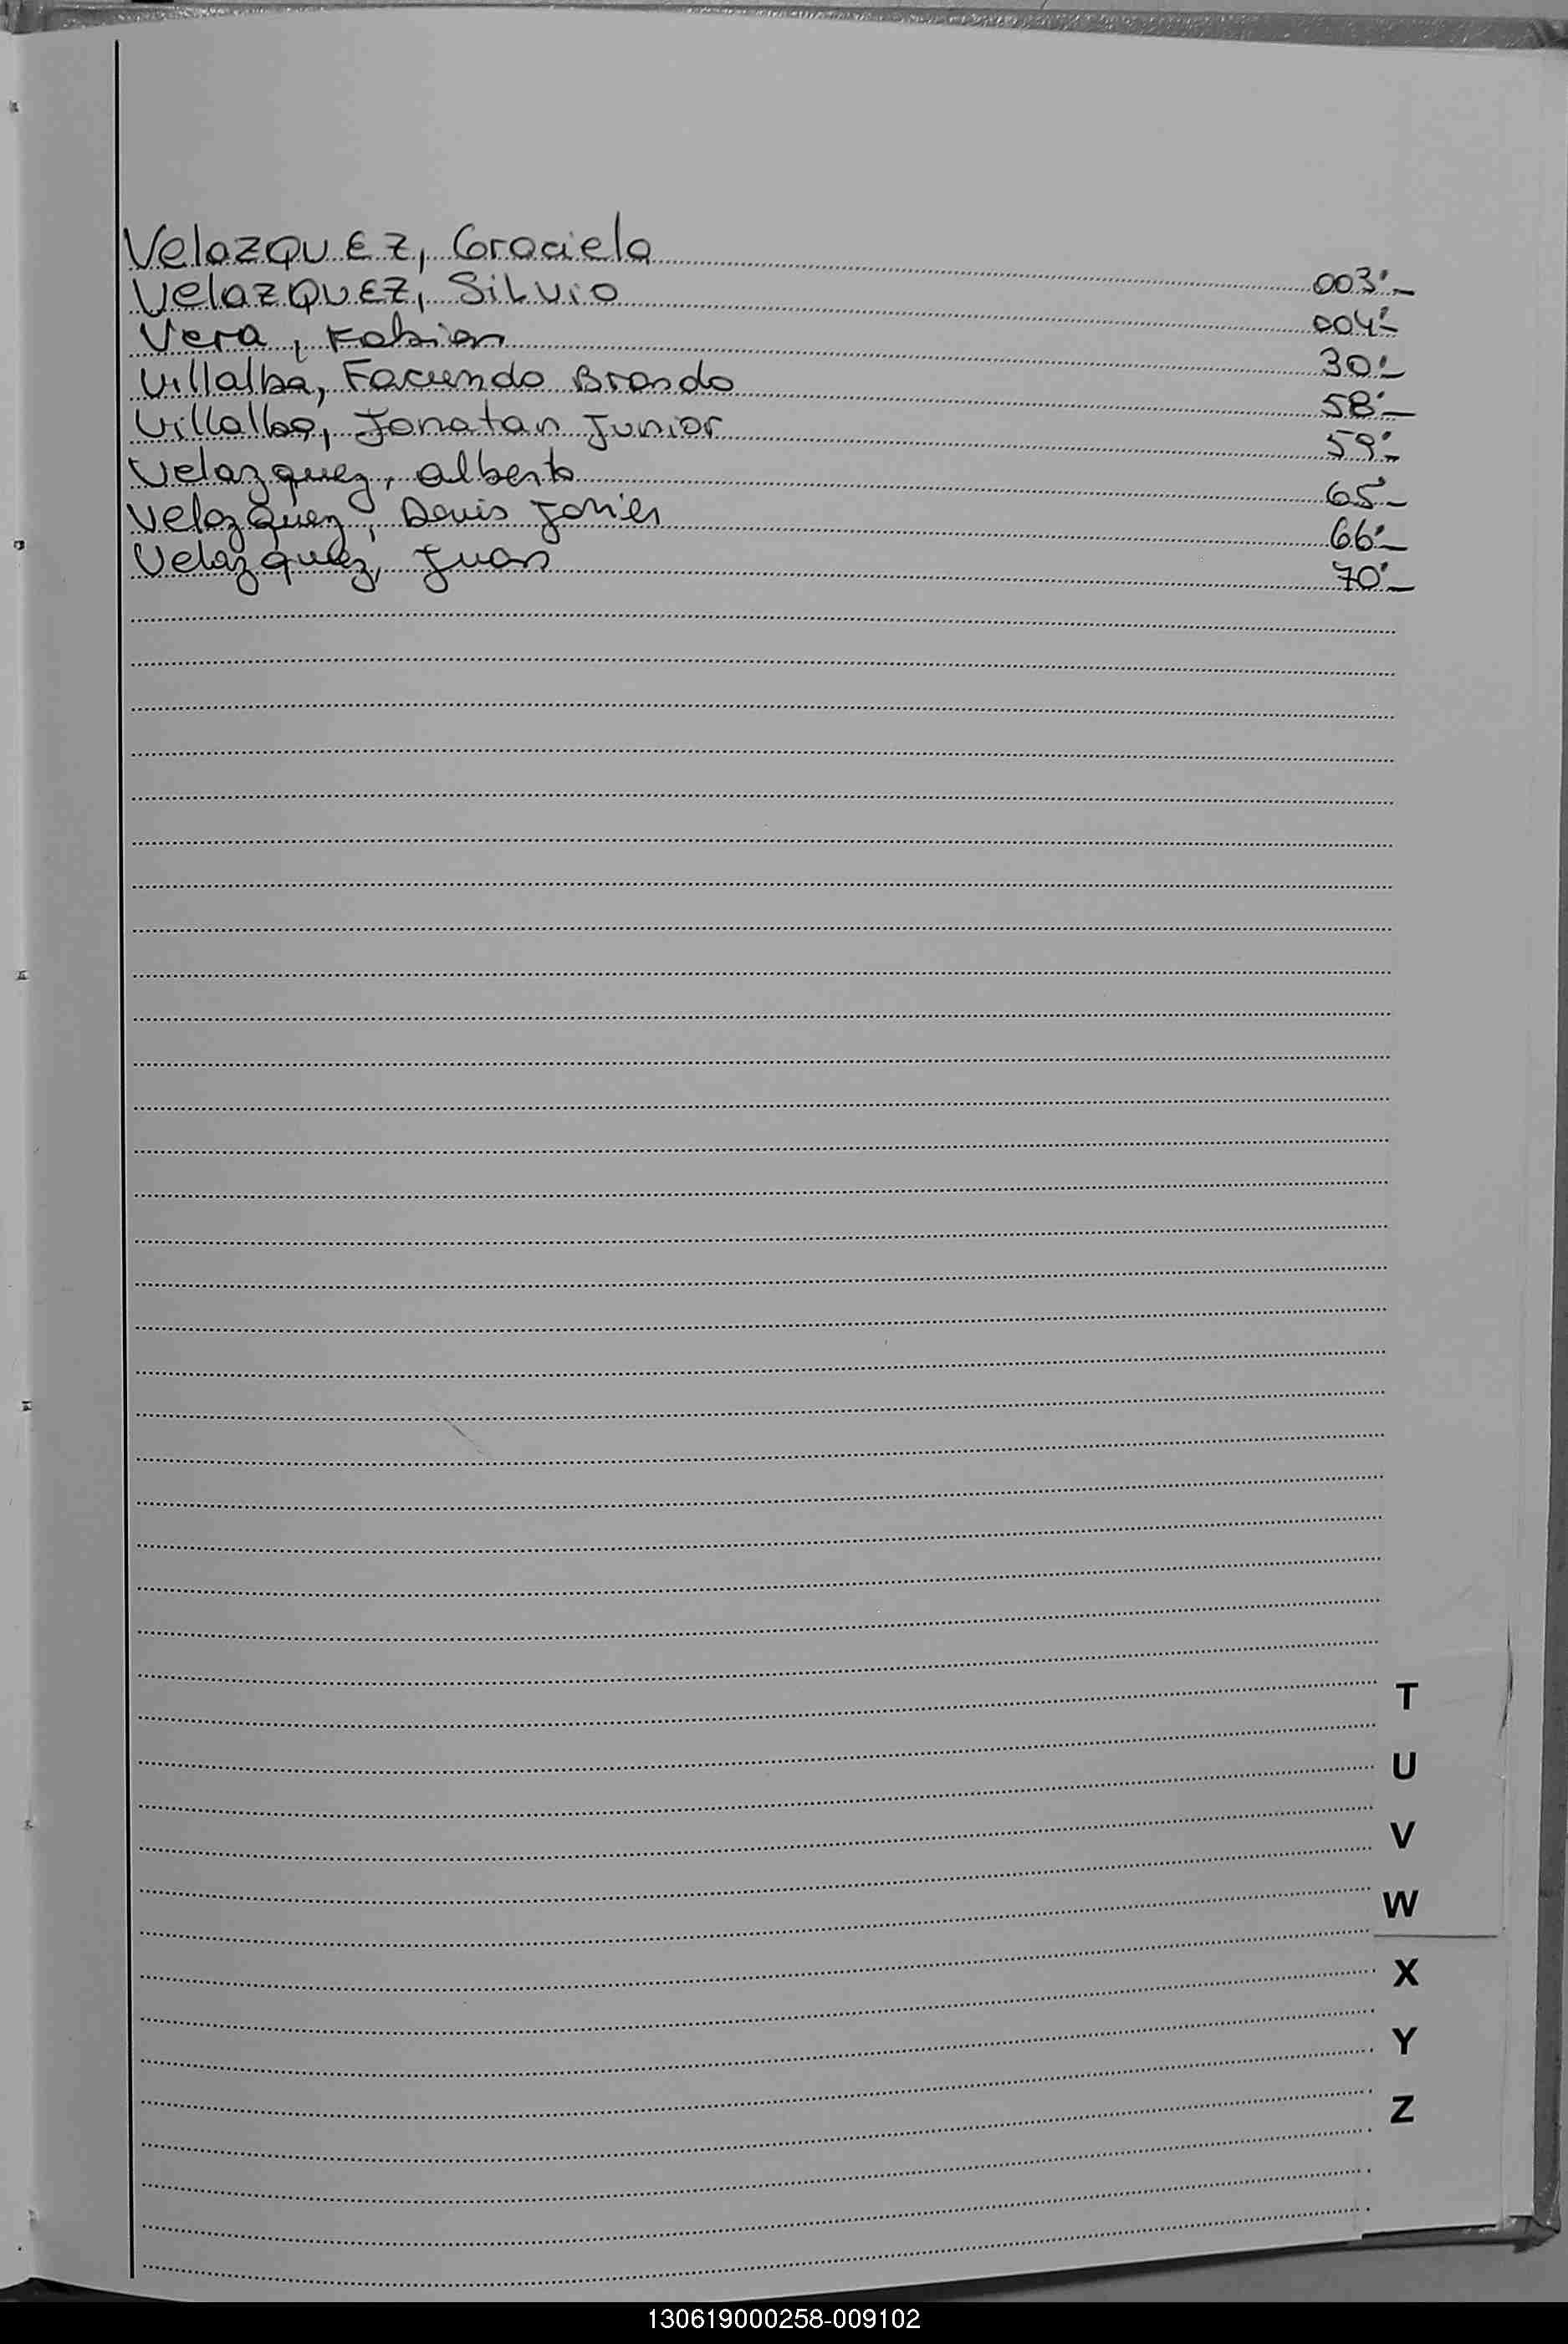 VelazQUEZ, Graciela 003'-
VelazQUEZ, SiLvio 004'-
Vera, Fabian 30'-
Villalba, Facundo Brando 58'-
Villalba, Jonatan Junior 59'-
Velazquez, Alberto 65'-
Velazquez, Denis Javier 66'-
Velazquez, Juan 70'-
T
U
V
W
X
Y
Z
130619000258-009102